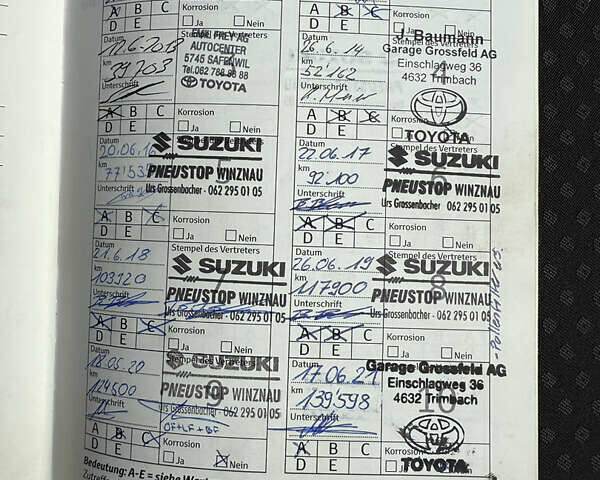 A B C
D E
Korrosion
Ja Nein
A B C
D E
Ja Nein
Datum
12.6.2013
km
39'203
Unterschrift
Stempel des Vertreters
EMIL FREY AG
AUTOCENTER
5745 SAFENWIL
Tel.062 788 88 88
TOYOTA
Datum
26.6.14
km
52'162
Unterschrift
Stempel des Vertreters
J. Baumann
Garage Grossfeld AG
Einschlagweg 36
4632 Trimbach
TOYOTA
A B C
D E
Korrosion
Ja Nein
A B C
D E
Datum
20.06.16
km
Unterschrift
Stempel des Vertreters
SUZUKI
PNEUSTOP WINZNAU
Urs Grossenbacher - 062 295 01 05
Datum
22.06.17
km
92'100
Unterschrift
Stempel des Vertreters
SUZUKI
PNEUSTOP WINZNAU
Urs Grossenbacher - 062 295 01 05
A B C
D E
Korrosion
Ja Nein
A B C
D E
Korrosion
Ja Nein
Datum
21.6.18
km
103'120
Unterschrift
Stempel des Vertreters
SUZUKI
PNEUSTOP WINZNAU
Urs Grossenbacher - 062 295 01 05
7
Datum
26.06.19
km
117'900
Unterschrift
Stempel des Vertreters
SUZUKI
PNEUSTOP WINZNAU
Urs Grossenbacher - 062 295 01 05
8
A B C
D E
Korrosion
Ja Nein
A B C
D E
Korrosion
Ja Nein
Datum
18.05.20
km
124'500
Unterschrift
Stempel des Vertreters
SUZUKI
PNEUSTOP WINZNAU
Urs Grossenbacher - 062 295 01 05
9
ÖF+LF+BF
Datum
17.06.21
km
139'598
Unterschrift
Garage Grossfeld AG
Einschlagweg 36
4632 Trimbach
10
TOYOTA
A B C
D E
Korrosion
Ja Nein
A B C
D E
Korrosion
Ja
Bedeutung: A-E = siehe